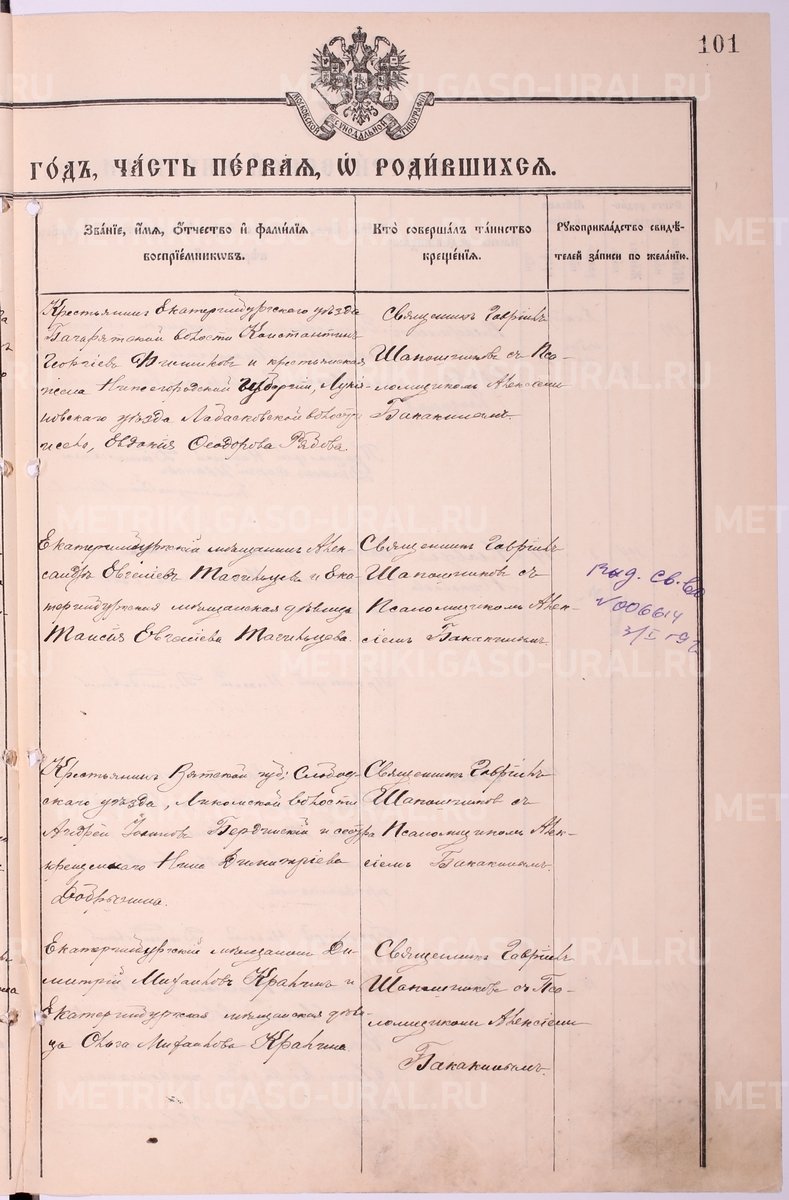 101
МОСКОВСКОЙ СѴНОДАЛЬНОЙ ТИПОГРАФІИ
ГОДЪ, ЧАСТЬ ПЕРВАЯ, Ѡ РОДИВШИХСЯ.
Званіе, имя, отчество и фамилія
воспріемниковъ.
Кто совершалъ таинство
крещенія.
Рукоприкладство свидѣ-
телей записи по желанію.
Крестьянинъ Екатеринбургскаго уѣзда
волости Константинъ
Георгіевъ и крестьянская
Нижегородской губерніи, Луко-
новскаго уѣзда волости
Евдокія Ѳеодорова Рябова.
Священникъ Гавріилъ
Шапошниковъ съ Пса-
ломщикомъ Алексіемъ
Бакакинымъ.
Екатеринбургскій мѣщанинъ Алек-
сандръ Евгеніевъ и Ека-
теринбургская мѣщанская дѣвица
Таисія Евгеніева
Священникъ Гавріилъ
Шапошниковъ съ
Псаломщикомъ Алек-
сіемъ Бакакинымъ.
выд. св-во
№006614
Крестьянинъ Вятской губ; Слобод-
скаго уѣзда, волости
Андрей и сестра
Нина Димитріева
Добрынина.
Священникъ Гавріилъ
Шапошниковъ съ
Псаломщикомъ Алек-
сіемъ Бакакинымъ.
Екатеринбургскій мѣщанинъ Ди-
митрій Михаиловъ и
Екатеринбургская мѣщанская дѣви-
ца Ольга Михаилова
Священникъ Гавріилъ
Шапошниковъ съ Пса-
ломщикомъ Алексіемъ
Бакакинымъ.
METRIKI.GASO-URAL.RU